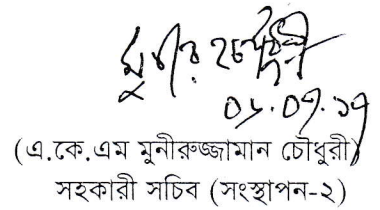 ০১.০৭.১৭
(এ.কে.এম মুনীরুজ্জামান চৌধুরী)
সহকারী সচিব (সংস্থাপন-২)